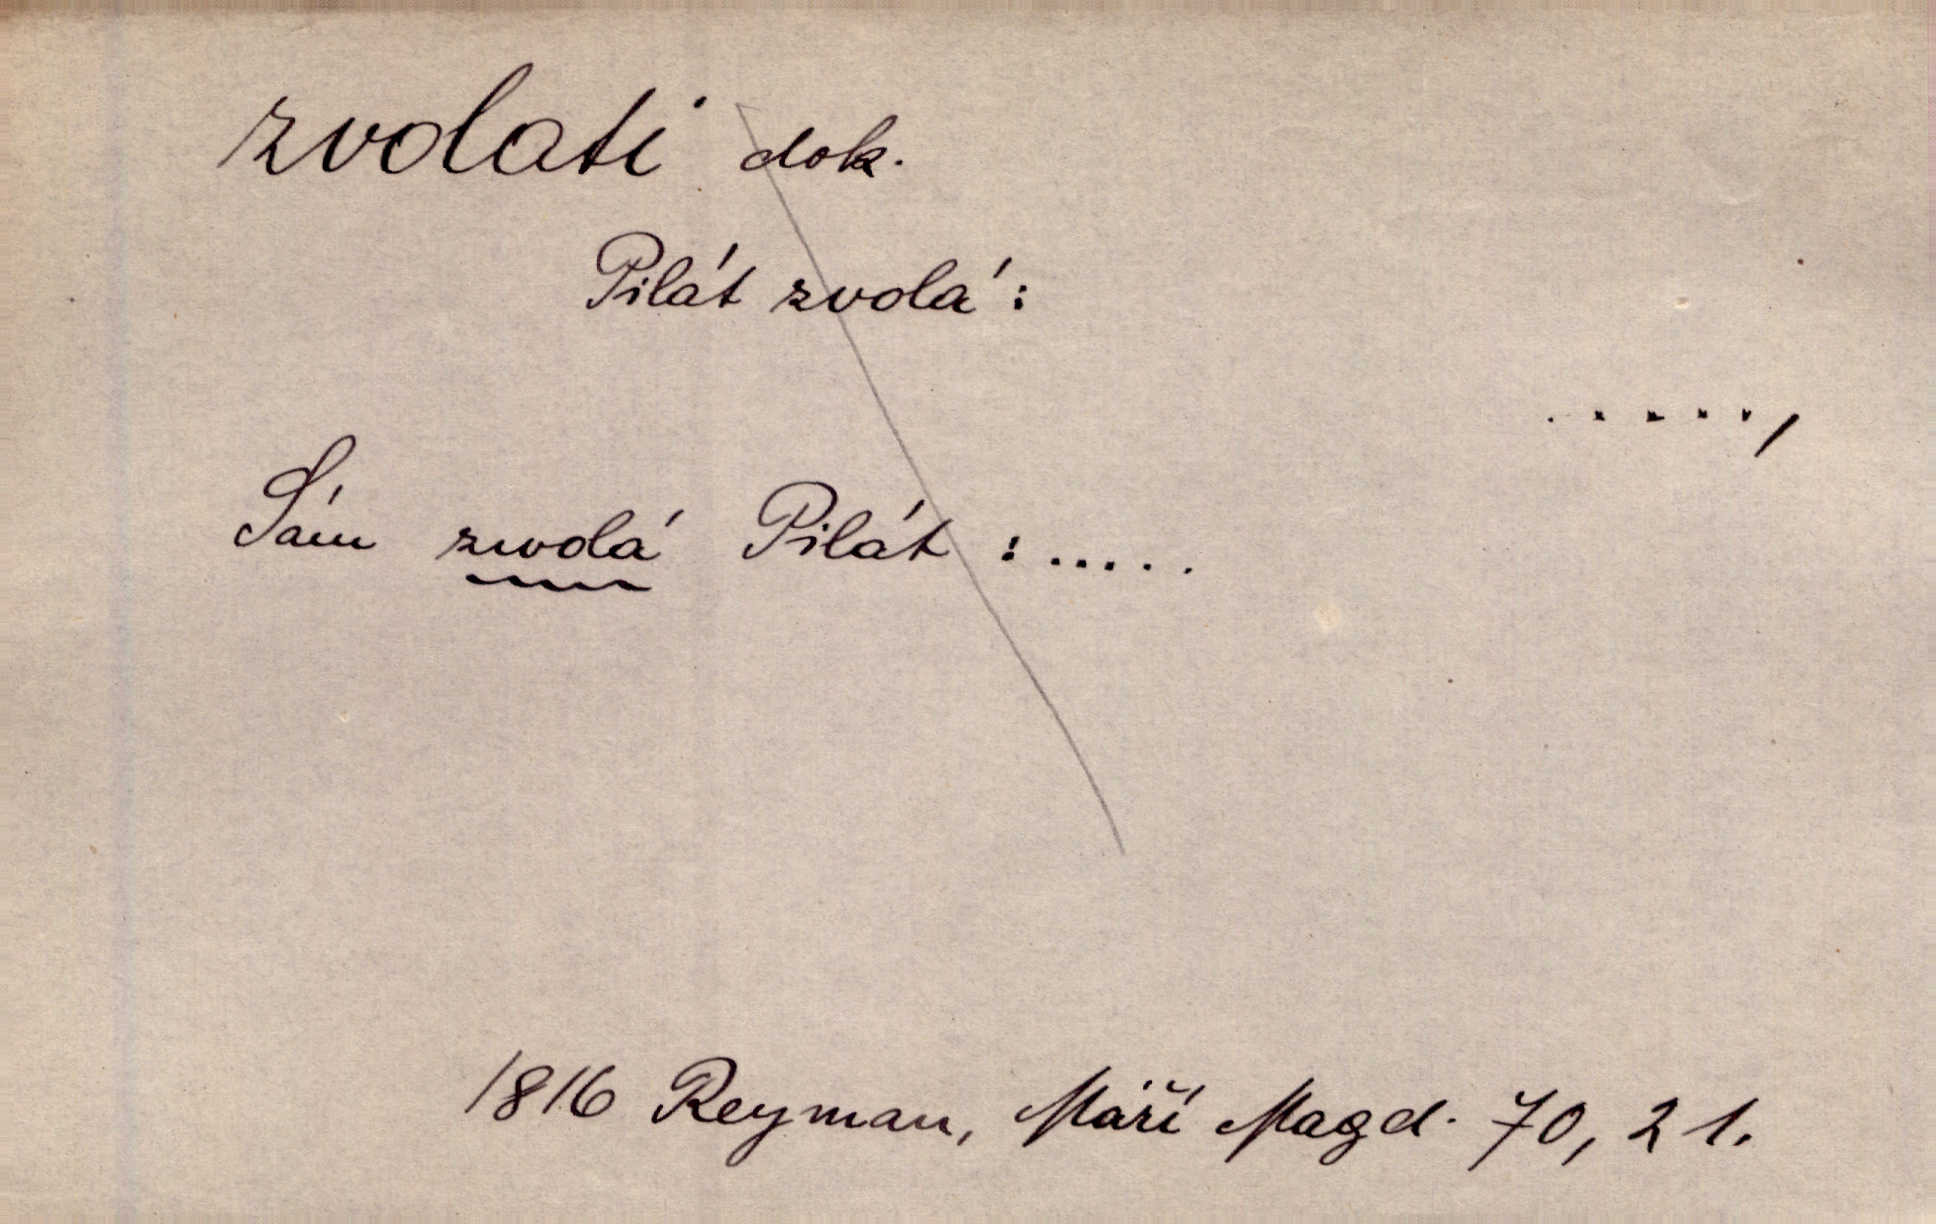 zvolati dok.
Pilát zvolá:
.....,
Sám zwolá Pilát : .....
1816 Reyman, Máří Magd. 70, 21.